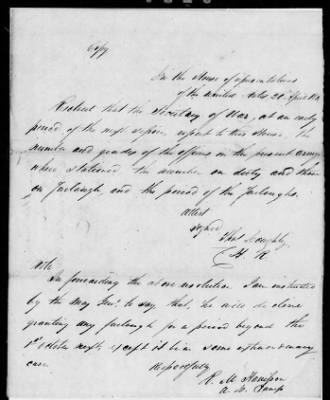 Copy
In the House of Representatives
of the United States 20 April 18
Resolved that the Secretary of War, at an early
period of the next session, report to this House, the
number and grades of the officers in the present army
where stationed the number on duty and those
on furlough, and the period of the furloughs.
Attest
signed
Thos Dougherty
C H R
Note
In forwarding the above resolution I am instructed
by the Maj Genl. to say that, he will decline
granting any furlough for a period beyond the
1st October next, except it be in some extraordinary
case.
Respectfully
R. M. Harrison
A. D. Camp